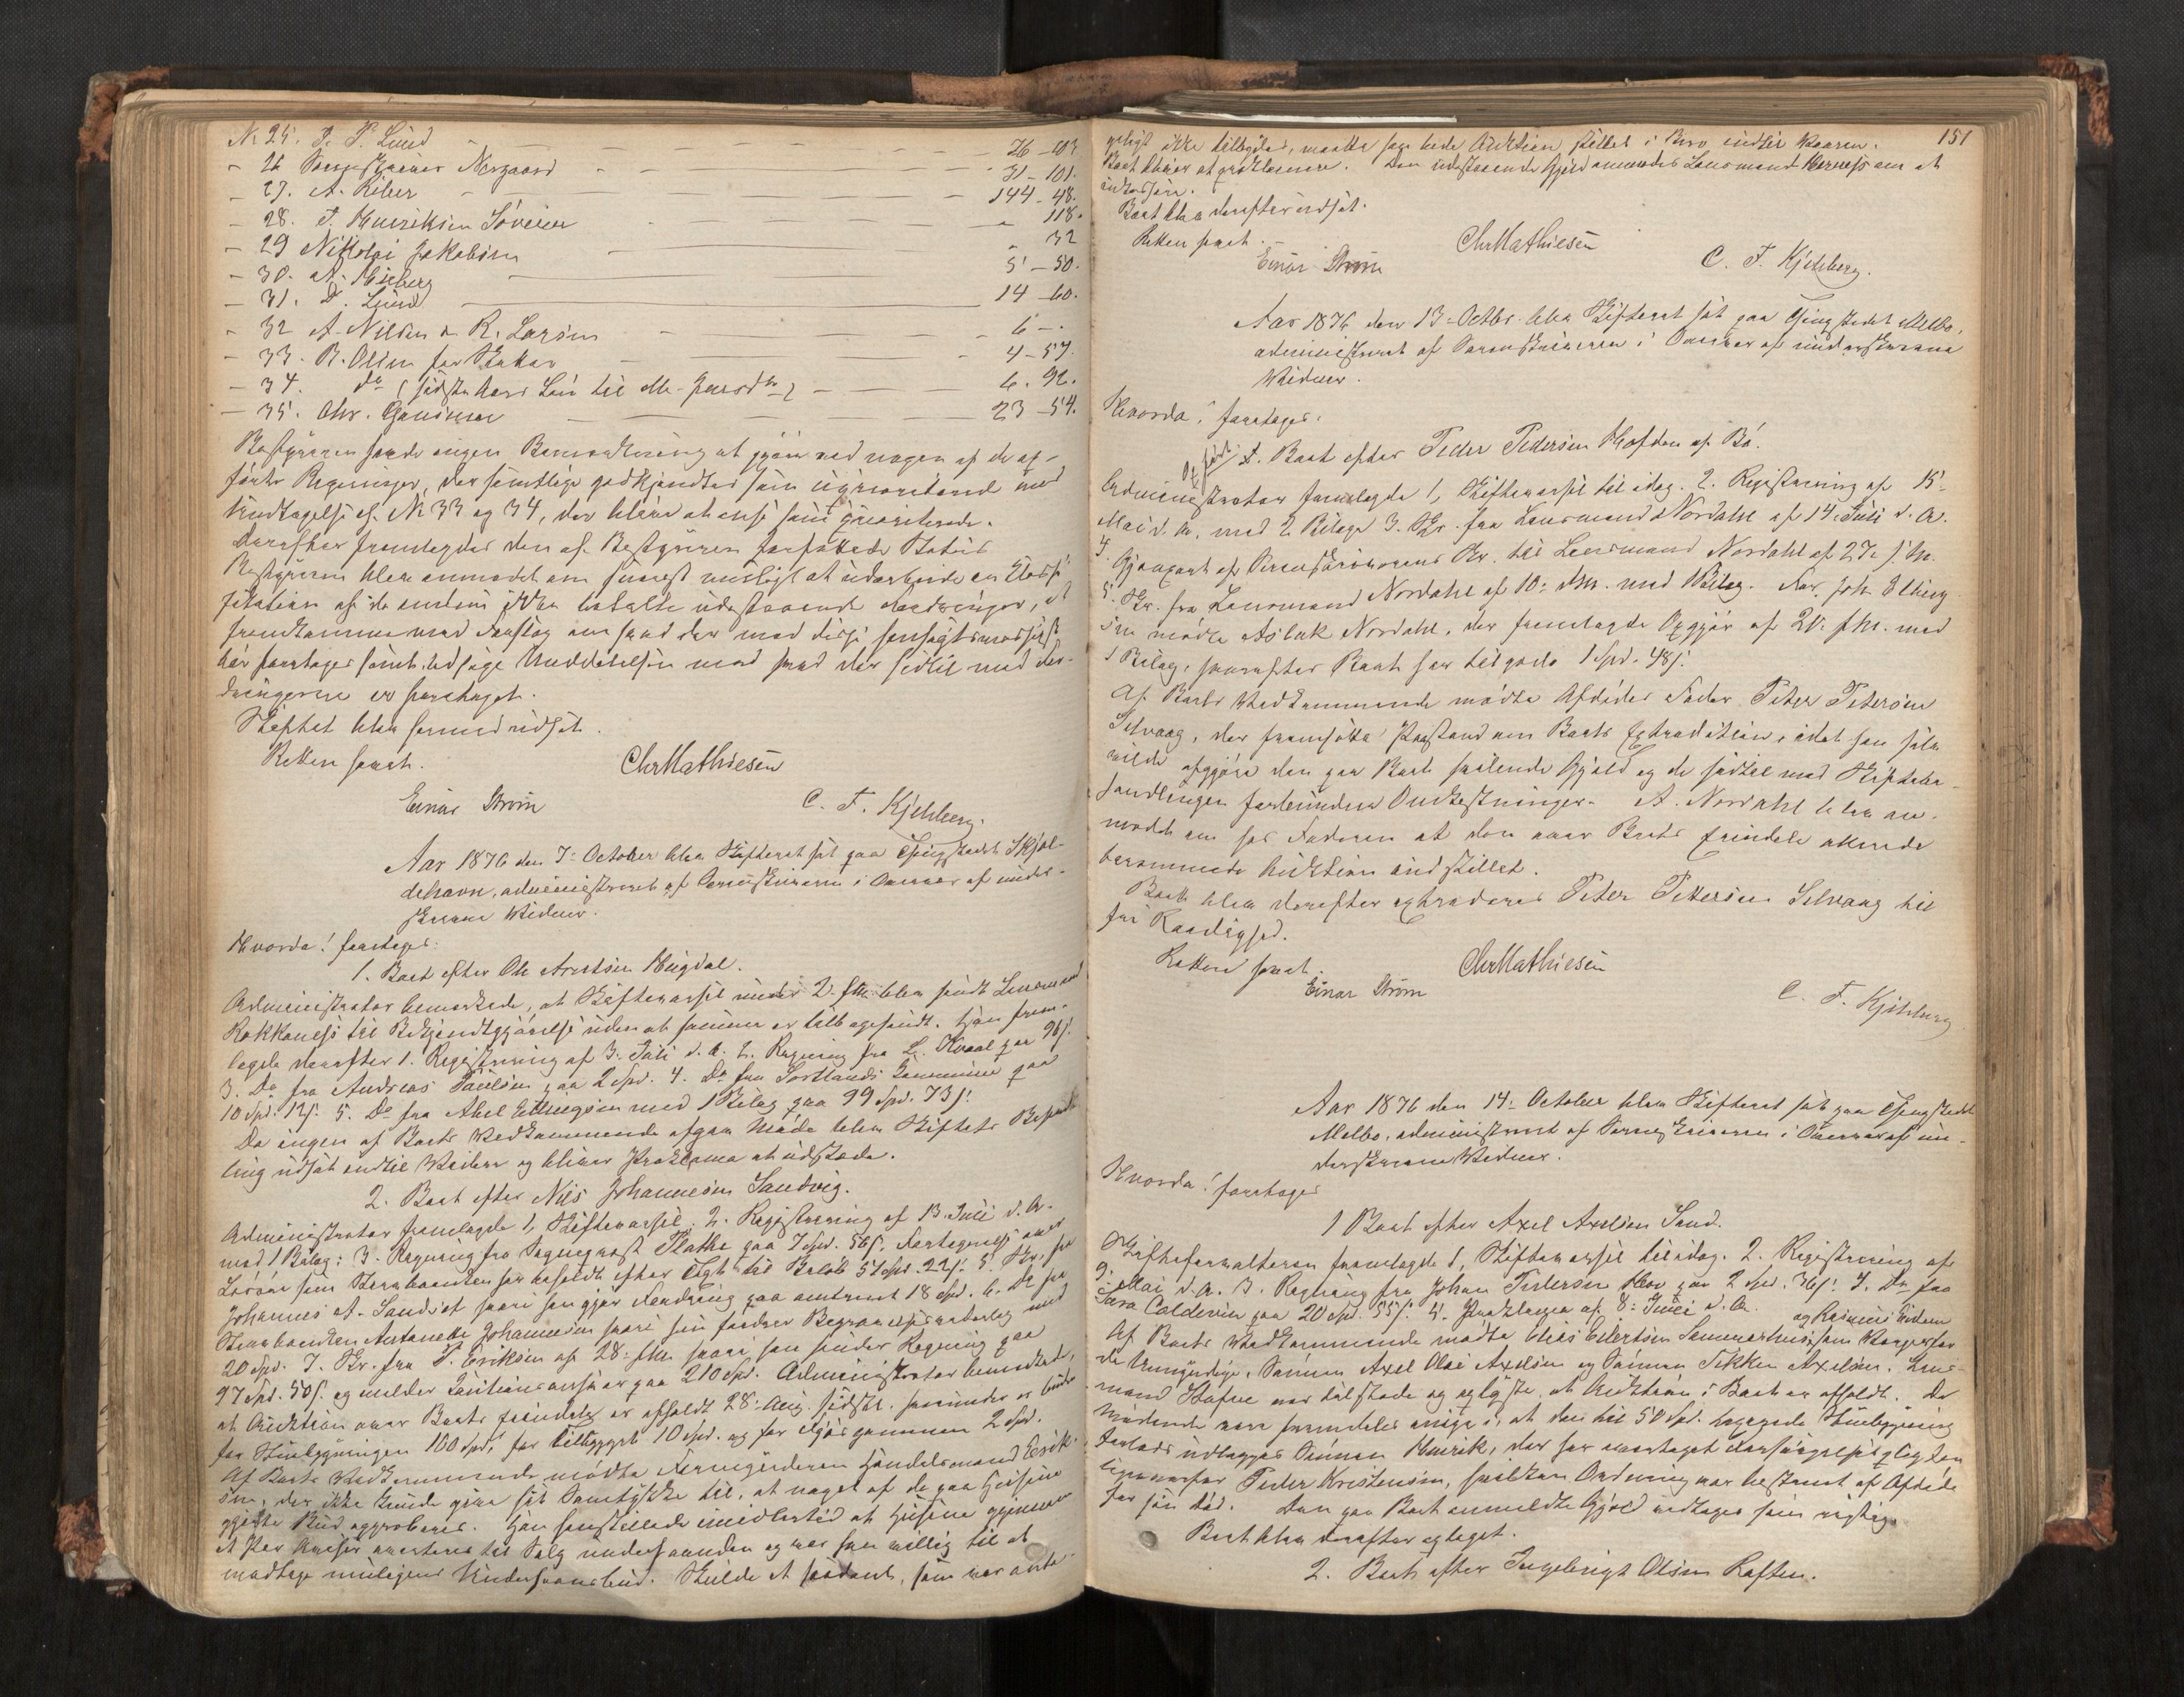 No 25. P. P. Lund — 26 - 103
- 26 Sorenskriver Nergaard — 31 - 101.
- 27. A. Riber — 144 - 48.
- 28. P. Henriksen — " 118.
- 29 Nikolai Jakobsen — " 32
- 30. A. Hieberg — 5 - 50.
- 31. D. Lund — 14 - 60.
- 32 A. Nilsen & R. Larsen — 6 - "
- 33. B. Olsen for Skatter — 4 - 57.
- 34. Do (sidste Aars Løn til — 6. 92.
- 35. Chr. — 23 - 54.
Bestyreren havde ingen Bemærkning at gjøre ved nogen af de op-
førte Regninger, der samtlige godkjendtes som uprioriterede med
Undtagelse af No 33 og 34, der bliver at anse som prioriterede.
Derefter fremlagdes den af Bestyreren forfattede Status
Bestyreren blev anmodet om snarest muligt at udarbeide en
af de endnu ikke betalte udestaaende Fordringer, at
fremkomme med Forslag om hvad der med disse
bør foretages samt Meddelelse med hvad der hidtil med For-
dringerne er foretaget.
Skiftet blev hermed udsat.
Retten hævet.
Chr Mathiesen
Einar Strøm C. F. Kjelsberg.
Aar 1876 den 7: October blev Skifteret sat paa Thingstedet Skjol-
dehavn, administreret af Sorenskriveren i Overvær af under-
skrevne Vidner.
Hvorda! foretages:
1. Boet efter Ole Arntsen Kvigdal.
Administrator bemærkede, at Skiftevarsel under 2. blev sendt Lensmand
Rokkones til Bekjendtgjørelse uden at samme er tilbagesendt. Han frem-
lagde derefter 1. Registrering af 3. Juli d. A. 2. Regning fra L. Kvaal paa 96 s.
3. Do fra Andreas Paulsen paa 2 Spd. 4. Do fra Sortlands Kommune paa
10 Spd. 12 s. 5. Do fra Abel Ellingsen med 1 Bilag paa 99 Spd. 73 s.
Da ingen af Boets Vedkommende afgav Møde blev Skiftets Behand-
ling udsat indtil Videre og bliver Proklama at udstede.
2. Boet efter Nils Johannesen Sandvig.
Administrator fremlagde 1, Skiftevarsel. 2. Registrering af 13. Juli d. A.
med 1 Bilag: 3. Regning fra Sogneprest Flathe paa 7 Spd. 56 s. Fortegnelse over
Løsøre som Sterboenken har beholdt efter Tagt til Beløb 51 Spd. 22 s. 5. Skr. fra
Johannes A. Sandvig hvori han gjør Fordring paa omtrent 18 Spd. 6. Do fra
Sterboenken Antonette Johannesen hvori hun fordrer Begravelsesudlæg med
20 Spd. 7. Skr. fra P. Eriksen af 28: hvori han sender Regning paa
97 Spd. 50 s. og melder Kautionsansvar paa 210 Spd. Administrator bemærkede,
at Auktion over Boets Eiendele er afholdt 28: Aug. sidstl. hvorunder er budt
for Husbygningen 100 Spd., for Tilbygget 10 Spd. og for 2 Spd.
Af Boets Vedkommende mødte Formynderen Handelsmand Erik-
sen, der ikke kunde give sit Samtykke til, at noget af de paa Husene
gjorte Bud approberes. Han henstillede imidlertid at Husene gjennem
et Par Aviser averteres til Salg underhaanden og var han villig til at
modtage muligens Underhaandsbud. Skulde et saadant, som var anta-
151
geligt ikke tilbydes, maatte han bede Auktion stillet i Bero indtil Vaaren.
Boet bliver at proklamere. Den udestaaende Gjæld anmodes Lensmand Kernæs om at
indkassere.
Boet blev derefter udsat.
Retten hævet.
Chr Mathiesen
Einar Strøm C. F. Kjelsberg.
Aar 1876 den 13: Octbr. blev Skifteret sat paa Thingstedet Melbo,
administreret af Sorenskriveren i Overvær af underskrevne
Vidner.
Hvorda! foretages:
1. Boet efter Peder Pedersen Hofden af Bø.
Administrator fremlagde 1, Skiftevarsel til idag. 2. Registrering af 15:
Mai d. A. med 2 Bilage 3. Skr. fra Lensmand Nordahl af 14. Juli d. A.
4. Gjenpart af Sorenskriverens Skr. til Lensmand Nordahl af 27. f. M.
5. Skr. fra Lensmand Nordahl af 10: ds. med 1 Bilag. For Joh. Elling-
sen mødte Aslak Nordahl, der fremlagde Opgjør af 20. f. M. med
1 Bilag, hvorefter Boet har tilgode 1 Spd. 48 s.
Af Boets Vedkommende mødte Afdødes Fader Peter Petersen
Selvaag, der fremsatte Paastand om Boets Extradition, idet han selv
vilde afgjøre den paa Boet hvilende Gjæld og de hidtil med Skiftebe-
handlingen forbundne Omkostninger. A. Nordahl blev an-
modet om hos Faderen at den over Boets Eiendele
berammede Auktion indstillet.
Boet blev derefter extraderet Peter Pettersen Selvaag til
fri Raadighed.
Retten hævet.
Chr Mathiesen
Einar Strøm C. F. Kjelsberg
Aar 1876 den 14: October blev Skifteret sat paa Thingstedet
Melbo, administreret af Sorenskriveren i Overvær af un-
derskrevne Vidner.
Hvorda! foretages
1 Boet efter Axel Axelsen Sand.
Skifteforvalteren fremlagde 1, Skiftevarsel til idag. 2. Registrering af
9: Mai d. A. 3. Regning fra Johan Pedersen Hov paa 2 Spd. 36 s. 4. Do fra
Sara Coldevin paa 20 Spd. 55 s. 4. Proklama af 8: Juni d. A.
og Rasmus
Af Boets Vedkommende mødte Elias Eilertsen Sommerhus som Værge for
de Umyndige, Sønnen Axel Olai Axelsen og Sønnen Fekken Axelsen. Lens-
mand Hofne var tilstede og oplyste, at Auktion i Boet er afholdt. De
Mødende vare fremdeles enige i, at den til 50 Spd. Husbygning
udlægges Sønnen Henrik, der har overtaget Forsørgelsespligten
ligeoverfor Peder Kristensen, hvilken Ordning var bestemt af Afdøde
før sin Død. Den paa Boet anmeldte Gjæld vedtages som rigtig.
Boet blev derefter optaget.
2. Boet efter Ingebrigt Olsen Raften.